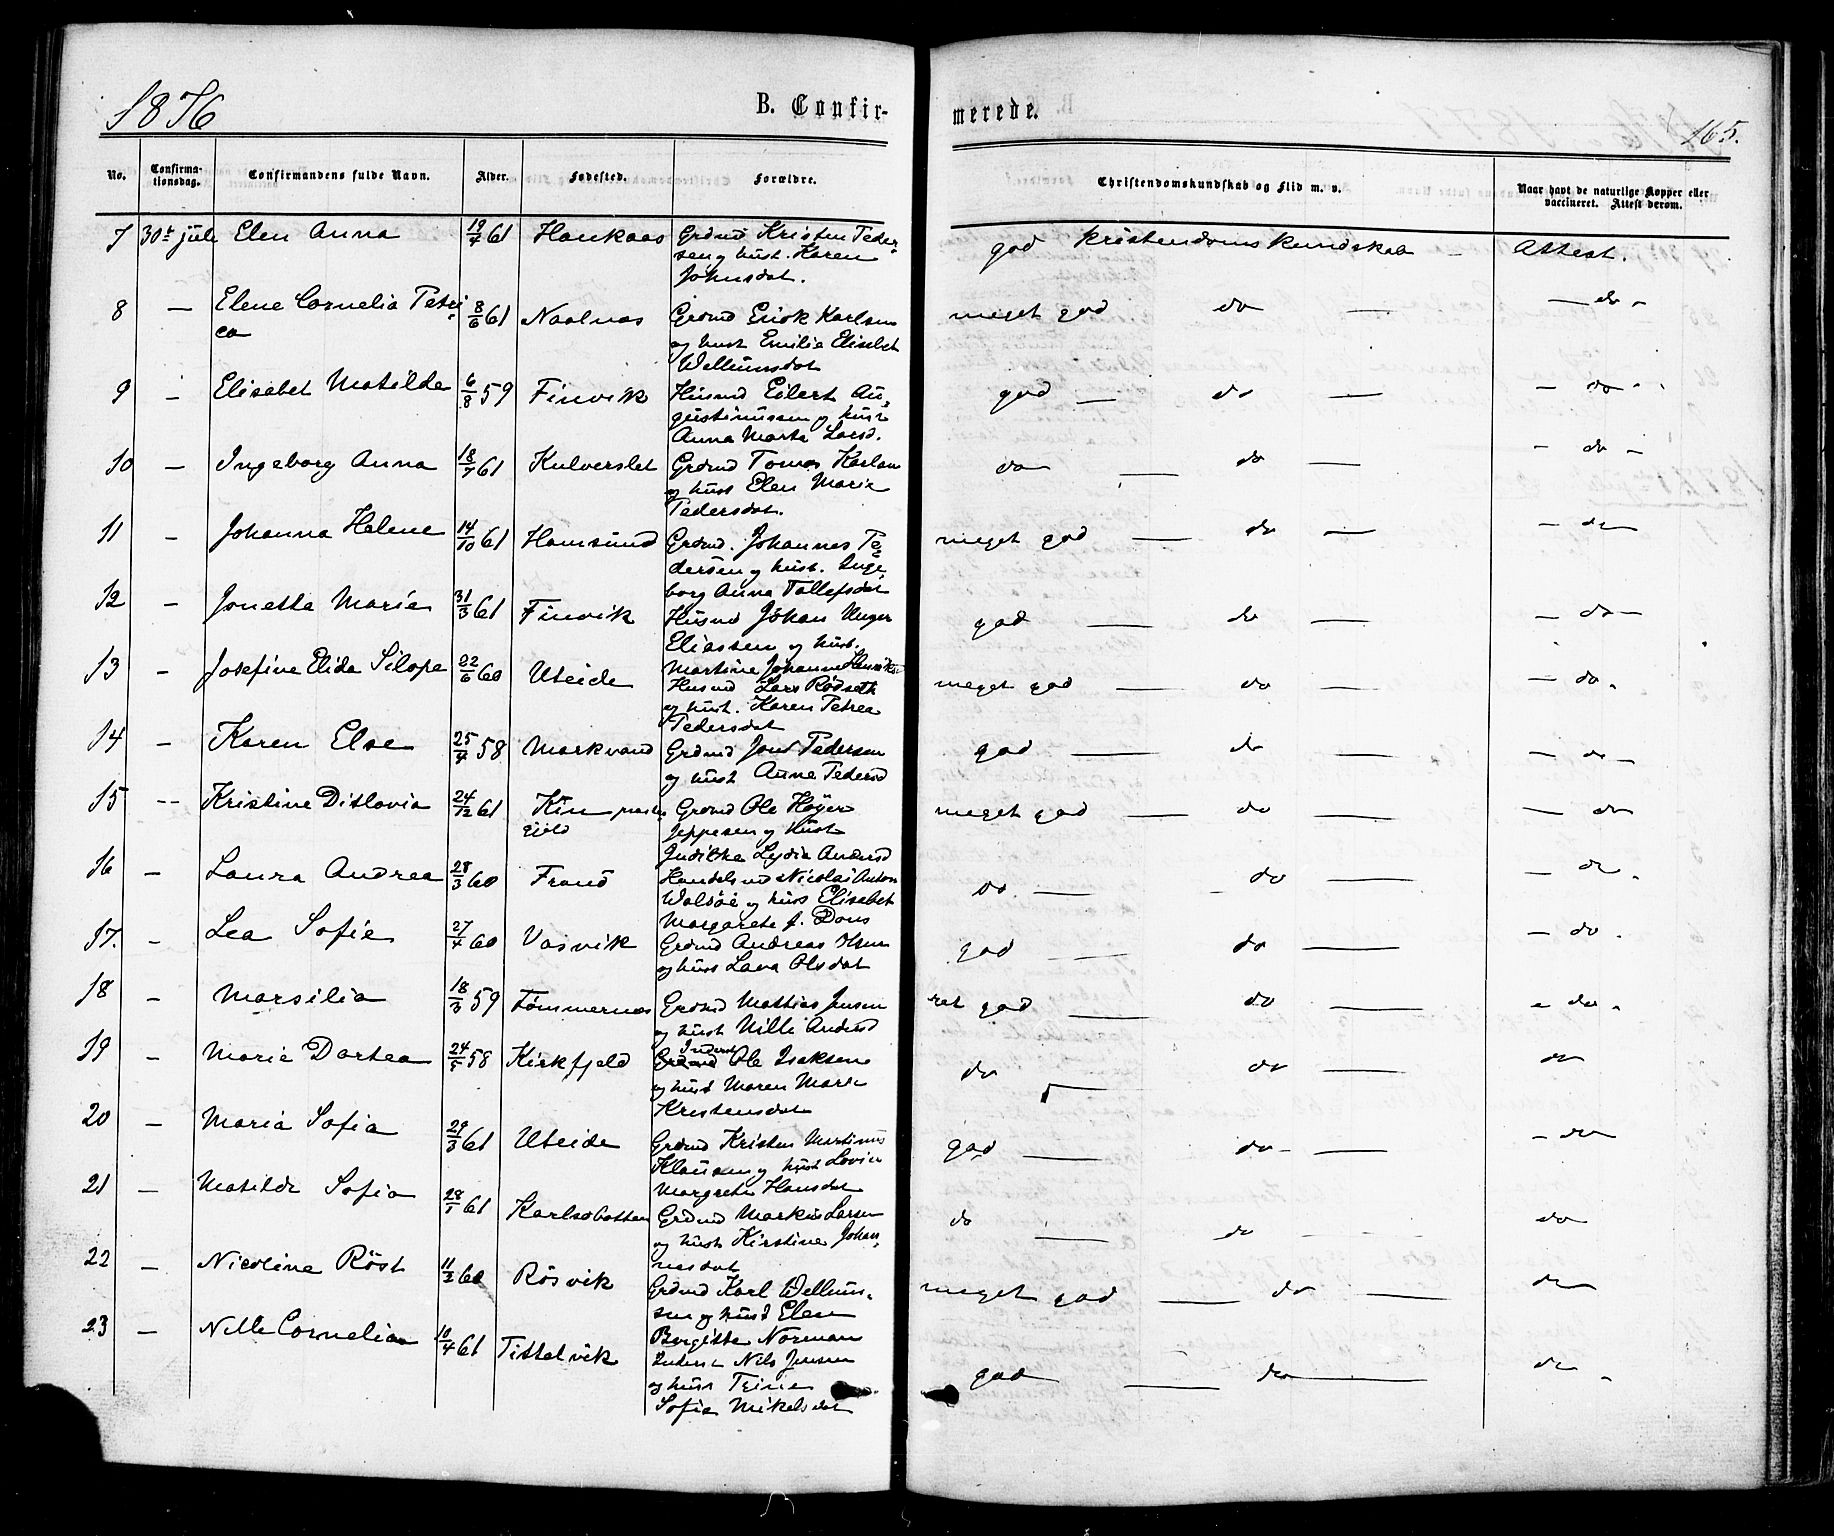 1876
B. Confir-
merede.
165.
No.
Confirma-
tionsdag.
Confirmandens fulde Navn.
Alder.
Fødested.
Forældre.
Christendomskundskab og Flid m. v.
Naar havt de naturlige Kopper eller
vaccineret. Attest derom.
7 30t juli Elen Anna 19/7 61 Haukaas Grdmd Kristen Peder-
sen og hust. Karen
Johnsdat.
god kristendomskundskab - Attest.
8 — Elene Cornelia Petri-
ca 8/6 61 Naalnas Grdmd Erik Karlsen
og hust Emilie Elisabet
Wellumsdat
meget god do — — do -
9 - Elisabet Matilde 6/8 59 Finvik Husmd Eilert Au-
gustinussen og hust
Anna Marta Larsd.
god — do — — do -
10 — Ingeborg Anna 18/7 61 Kulverslet Grdmd Tomas Karlsen
og hust Elen Marie
Pedersdat.
do — do — - do -
11 - Johanna Helene 14/10 61 Hamsund Grdmd. Johannes Pe-
dersen og hust. Inge
borg Anna Tollefsdat
meget god — do — - do
12 - Jonetta Marie 31/3 61 Finvik Husmd Johan Unger
Eliassen og hust.
Martine Johanne
god — do — - do -
13 - Josefine Elida Silope 22/6 60 Uteide Husmd Lars Rödseth
og hust. Karen Petrea
Pedersdat
meget god — do — - do.
14 - Karen Else 25/4 58 Markvand Grdmd Jons Pedersen
og hust Anne Pedersd
god — do — - do -
15 -- Kristine Ditlovia 24/12 61 Kin præste
gjeld Grdmd Ole Höyer
Jeppesen og hust
Judithe Lydia Andersd
meget god — do — — do
16 - Laura Andrea 28/3 60 Frand Handelsmd Nicolai Anton
Walsöe og hust Elisabet
Margarete f. Dons
do. — do — - do.
17. - Lea Sofie 27/4 60 Vasvik Grdmd Andreas Olsen
og hust Lava Olsdat
god — do — - do.
18 - Marsilia 18/3 59 Tømmernæs Grdmd Mathias Jensen
og hust Nille Andersd
ret god — do — - do -
19 - Marie Dortea 24/5 58 Kirkfjeld Inderst
Grdmd Ole Isaksen
og hust Maren Marie
Kristensdat
do — do — do
20 - Maria Sofia 29/3 61 Uteide Grdmd Kristen Martinus
Klausen og hust Lovise
Margrete Hansdat
god — do - — - do
21 - Matilde Sofia 28/1 61 Karlsobotten Grdmd Markus Larsen
og hust Kirstine Johan-
nesdat
do — do — do
22 - Nicoline Röst 11/2 60 Rösvik Grdmd Karl Wellum-
sen og hust Elen
Bergitte Norman
meget god — do — do
23 - Nille Cornelia 10/4 61 Tittelvik Inderst Nils Jensen
og hust Trine
Sofia Mikelsdat
god — do — do -